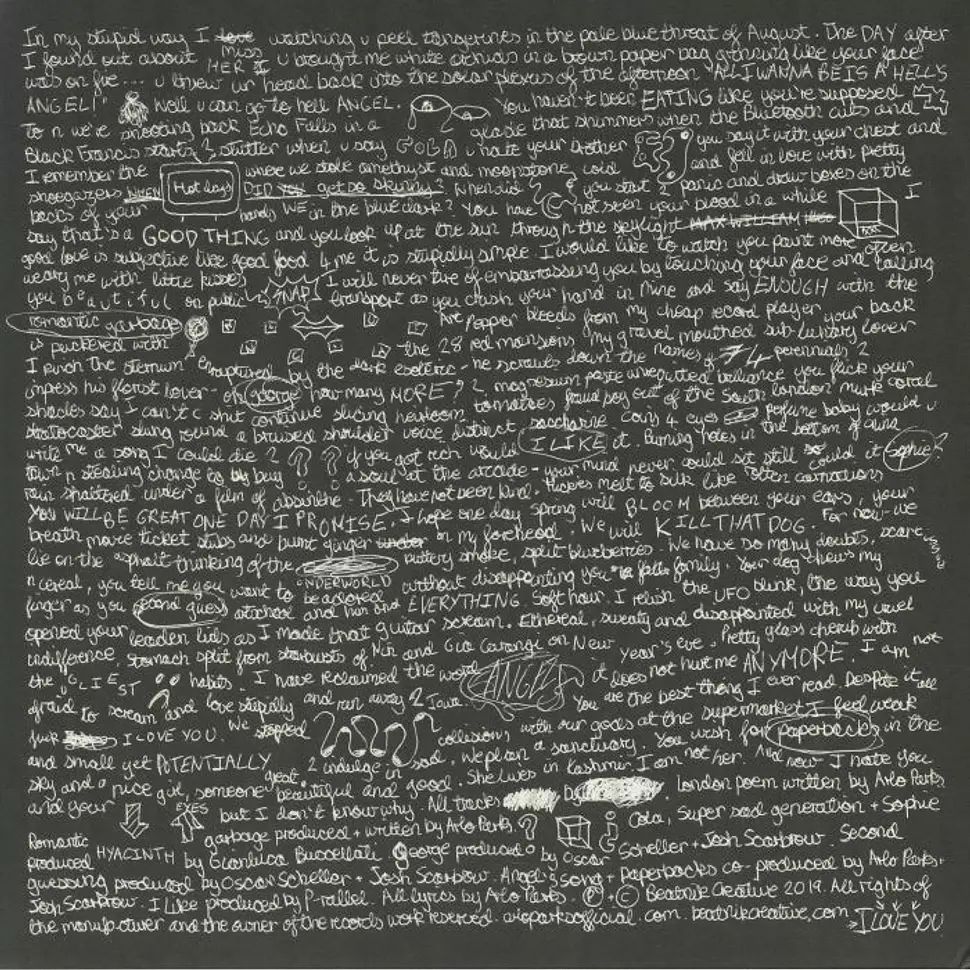 In my stupid way I love watching u peel tangerines in the pale blue throat of August. The DAY after
I found out about HER I miss u brought me white arrivals in a brown paper bag grinning like your face
was on fire .... u threw ur head back into the solar plexus of the afternoon "ALL I WANNA BE IS A HELL'S
ANGEL!" Well u can go to hell ANGEL. You haven't been EATING like you're supposed
To n we're shooting back Echo Falls in a glade that shimmers when the Bluetooth cuts and
Black Francis starts 2 stutter when u say GOBA u hate your brother you say it with your chest and
I remember the where we stole amethyst and moonstone and fell in love with pretty
shoegazers WHEN Hot days DID YOU get so skinny? When did you start 2 panic and draw boxes on the
backs of your hands WE in the blue dark? You have not seen your blood in a while MAX WILLIAM I
say that's a GOOD THING and you look up at the sun through the skylight
good love is subjective like good food 4 me it is stupidly simple. I would like to watch you paint more often
weary me with little kisses I will never tire of embarrassing you by touching your face and calling
you beautiful on public SNAP! transport as you clash your hand in mine and say ENOUGH with the
romantic garbage Art Pepper bleeds from my cheap record player your back
is puckered with the 28 red mansions. My gravel mouthed sub-luxury lover
I punch the sternum enraptured by the dark esoteric - he scrawls down the names of 74 perennials 2
impress his florist lover - oh george how many MORE? 2 magnesium paste unrequited brilliance you fuck your
shades say I can't c shit continue slicing heirloom tomatoes fraud boy out of the South London murk carrel
stratocaster slung round a bruised shoulder voice distinct saccharine Cola's 4 eyes perfume baby would u
write me a song I could die 2 ?? if you got rich would I LIKE it. Burning holes in the bottom of auna
town n stealing change to buy a soul at the arcade - your mind never could sit still could it Sophie?
rain shattered under a film of absinthe. They have not been kind. Thickets melt to silk like often carnations
YOU WILL BE GREAT ONE DAY I PROMISE. I hope one day spring will BLOOM between your ears, your
breath more ticket stubs and burnt ginger under on my forehead. We will KILL THAT DOG. For now - we
lie on the asphalt thinking of the UNDERWORLD buttery smoke, split blueberries. We have so many doubts, scare
n cereal, you tell me you want to be adored without disappointing you family. Your dog chews my
finger as you second guess attached and him and EVERYTHING. Soft hour I relish the UFO blink, the way you
opened your leaden lids as I made that guitar scream. Ethereal, sweaty and disappointed with my cruel
indifference, stomach split from starbursts of Nin and Gia Carangi on New Year's eve. Pretty glass cherub with
the UGLIEST habits. I have reclaimed the word ANGEL it does not hurt me ANYMORE. I am not
afraid to scream and love stupidly and run away 2 Iowa. You are the best thing I ever read. Despite it all
fuck I LOVE YOU. We stopped collisions with our goals at the supermarket I feel weak
and small yet POTENTIALLY great, 2 indulge in sad. We plan a sanctuary. You wish for paperbacks in the
sky and a nice girl, someone beautiful and good. She lives in Kashmir I am not her. And now I hate you
and your EXES but I don't know why. All tracks by London poem written by Arlo Parks
Romantic garbage produced + written by Arlo Parks. Cola, Super sad generation + Sophie
produced HYACINTH by Gianluca Buccellati. George produced by Oscar Scheller + Josh Scarbrow. Second
guessing produced by Oscar Scheller + Josh Scarbrow. Angel's song + Paperbacks co-produced by Arlo Parks +
Josh Scarbrow. I Like produced by P-rallel. All lyrics by Arlo Parks. Ⓟ + © Beatnik Creative 2019. All rights of
the manufacturer and the owner of the records work reserved. arloparksofficial.com. beatnikcreative.com → I LOVE YOU